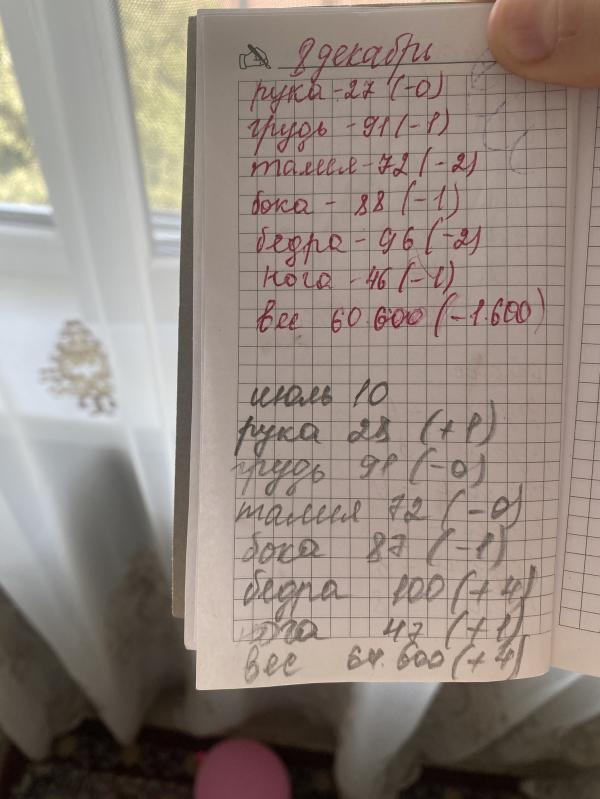 8 декабрь
рука - 27 (-0)
грудь - 91 (-1)
талия - 72 (-2)
бока - 88 (-1)
бедра - 96 (-2)
нога - 46 (-1)
вес 60.600 (-1.600)
июль 10
рука 28 (+1)
грудь 91 (-0)
талия 72 (-0)
бока 87 (-1)
бедра 100 (+4)
нога 47 (+1)
вес 64.600 (+4)